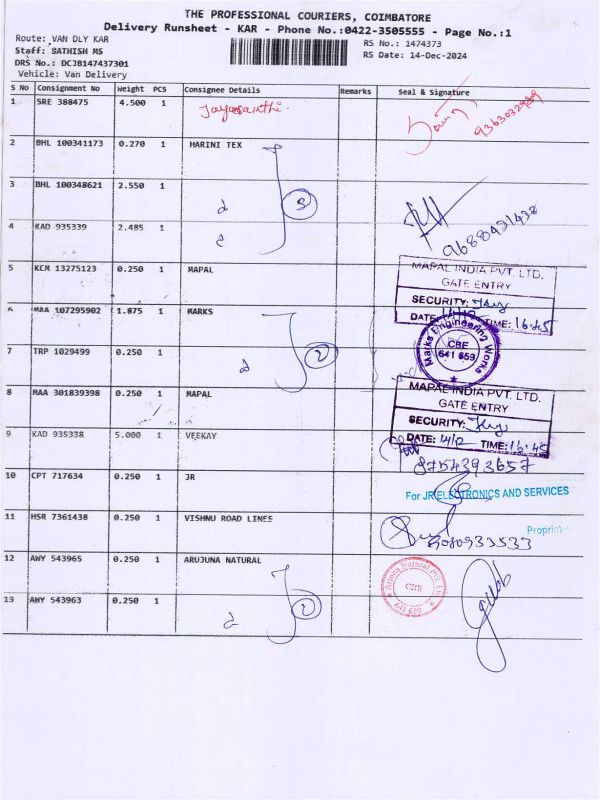 THE PROFESSIONAL COURIERS, COIMBATORE
Delivery Runsheet - KAR - Phone No.:0422-3505555 - Page No.:1
Route: VAN DLY KAR
RS No.: 1474373
Staff: SATHISH MS
RS Date: 14-Dec-2024
DRS No.: DCJB147437301
Vehicle: Van Delivery
S No Consignment No Weight PCS Consignee Details Remarks Seal & Signature
1 SRE 388475 4.500 1 Jayasanthi 9363032989
2 BHL 100341173 0.270 1 HARINI TEX
3 BHL 100348621 2.550 1
4 KAD 935339 2.485 1 9688421438
5 KCM 13275123 0.250 1 MAPAL
MAPAL INDIA PVT. LTD.
GATE ENTRY
SECURITY:
DATE: 14/12 TIME: 16:45
6 MAA 107295902 1.875 1 MARKS
Marks Engineering Works
CBE
641 659
7 TRP 1029499 0.250 1 2
8 MAA 301839398 0.250 1 MAPAL
MAPAL INDIA PVT. LTD.
GATE ENTRY
SECURITY:
DATE: 14/12 TIME: 16:45
9 KAD 935338 5.000 1 VEEKAY
8754393657
10 CPT 717634 0.250 1 JR
For JR ELECTRONICS AND SERVICES
11 HSR 7361438 0.250 1 VISHNU ROAD LINES
Propriet
12 AWY 543965 0.250 1 ARUJUNA NATURAL
Arjuna Natural Pvt. Ltd
CBE
13 AWY 543963 0.250 1